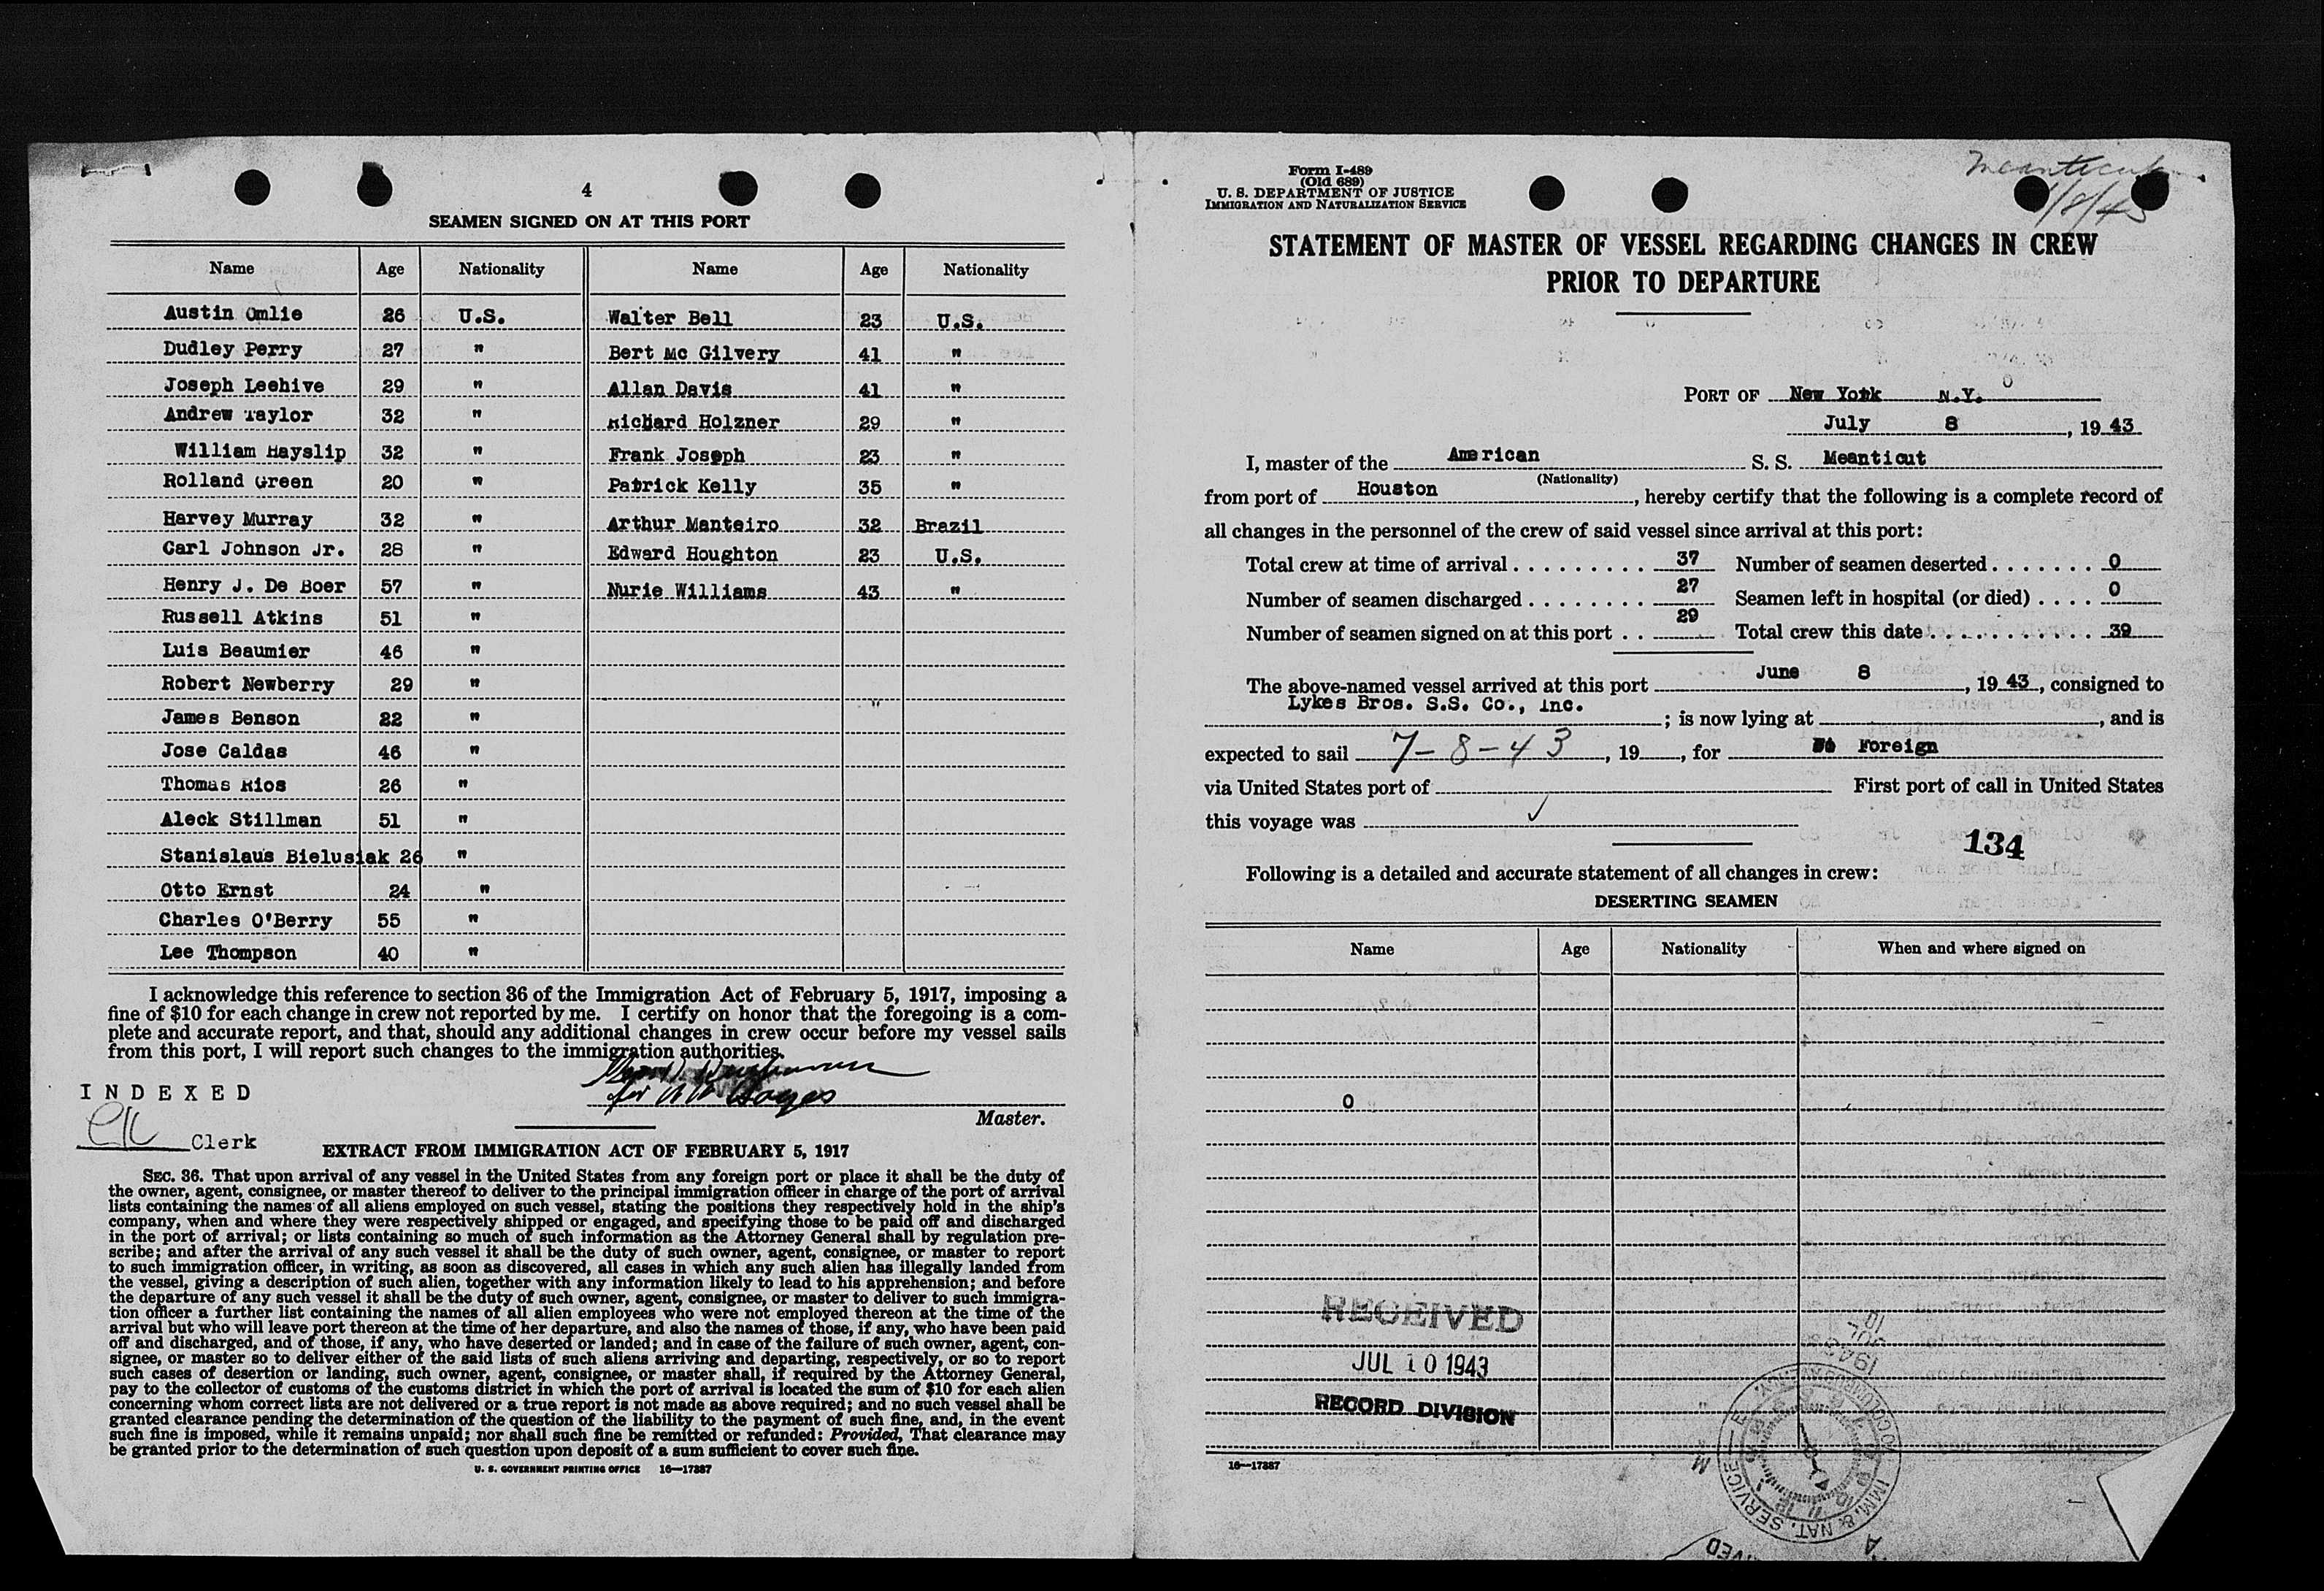 4
SEAMEN SIGNED ON AT THIS PORT
Name Age Nationality Name Age Nationality
Austin Omlie 26 U.S. Walter Bell 23 U.S.
Dudley Perry 27 " Bert Mc Gilvery 41 "
Joseph Leehive 29 " Allan Davis 41 "
Andrew Taylor 32 " Richard Holzner 29 "
William Hayslip 32 " Frank Joseph 23 "
Rolland Green 20 " Patrick Kelly 35 "
Harvey Murray 32 " Arthur Manteiro 32 Brazil
Carl Johnson Jr. 28 " Edward Houghton 23 U.S.
Henry J. De Boer 57 " Nurie Williams 43 "
Russell Atkins 51 "
Luis Beaumier 46 "
Robert Newberry 29 "
James Benson 22 "
Jose Caldas 46 "
Thomas Rios 26 "
Aleck Stillman 51 "
Stanislaus Bielusiak 26 "
Otto Ernst 24 "
Charles O'Berry 55 "
Lee Thompson 40 "
I acknowledge this reference to section 36 of the Immigration Act of February 5, 1917, imposing a
fine of $10 for each change in crew not reported by me. I certify on honor that the foregoing is a com-
plete and accurate report, and that, should any additional changes in crew occur before my vessel sails
from this port, I will report such changes to the immigration authorities.
for
Master.
INDEXED
Clerk
EXTRACT FROM IMMIGRATION ACT OF FEBRUARY 5, 1917
SEC. 36. That upon arrival of any vessel in the United States from any foreign port or place it shall be the duty of
the owner, agent, consignee, or master thereof to deliver to the principal immigration officer in charge of the port of arrival
lists containing the names of all aliens employed on such vessel, stating the positions they respectively hold in the ship's
company, when and where they were respectively shipped or engaged, and specifying those to be paid off and discharged
in the port of arrival; or lists containing so much of such information as the Attorney General shall by regulation pre-
scribe; and after the arrival of any such vessel it shall be the duty of such owner, agent, consignee, or master to report
to such immigration officer, in writing, as soon as discovered, all cases in which any such alien has illegally landed from
the vessel, giving a description of such alien, together with any information likely to lead to his apprehension; and before
the departure of any such vessel it shall be the duty of such owner, agent, consignee, or master to deliver to such immigra-
tion officer a further list containing the names of all alien employees who were not employed thereon at the time of the
arrival but who will leave port thereon at the time of her departure, and also the names of those, if any, who have been paid
off and discharged, and of those, if any, who have deserted or landed; and in case of the failure of such owner, agent, con-
signee, or master so to deliver either of the said lists of such aliens arriving and departing, respectively, or so to report
such cases of desertion or landing, such owner, agent, consignee, or master shall, if required by the Attorney General,
pay to the collector of customs of the customs district in which the port of arrival is located the sum of $10 for each alien
concerning whom correct lists are not delivered or a true report is not made as above required; and no such vessel shall be
granted clearance pending the determination of the question of the liability to the payment of such fine, and, in the event
such fine is imposed, while it remains unpaid; nor shall such fine be remitted or refunded: Provided, That clearance may
be granted prior to the determination of such question upon deposit of a sum sufficient to cover such fine.
U. S. GOVERNMENT PRINTING OFFICE 16—17387
Form I-489
(Old 689)
U. S. DEPARTMENT OF JUSTICE
IMMIGRATION AND NATURALIZATION SERVICE
Meanticut
STATEMENT OF MASTER OF VESSEL REGARDING CHANGES IN CREW
PRIOR TO DEPARTURE
PORT OF New York N.Y.
July 8, 1943
I, master of the American S. S. Meanticut
(Nationality)
from port of Houston, hereby certify that the following is a complete record of
all changes in the personnel of the crew of said vessel since arrival at this port:
Total crew at time of arrival 37 Number of seamen deserted 0
Number of seamen discharged 27 Seamen left in hospital (or died) 0
Number of seamen signed on at this port 29 Total crew this date 39
The above-named vessel arrived at this port June 8, 1943, consigned to
Lykes Bros. S.S. Co., Inc.; is now lying at , and is
expected to sail 7-8-43, 19 , for Foreign
via United States port of First port of call in United States
this voyage was ✓
134
Following is a detailed and accurate statement of all changes in crew:
DESERTING SEAMEN
Name Age Nationality When and where signed on
0
RECEIVED
JUL 10 1943
RECORD DIVISION
1943 JUL 10
IMM. & NAT. SERVICE
16—17387